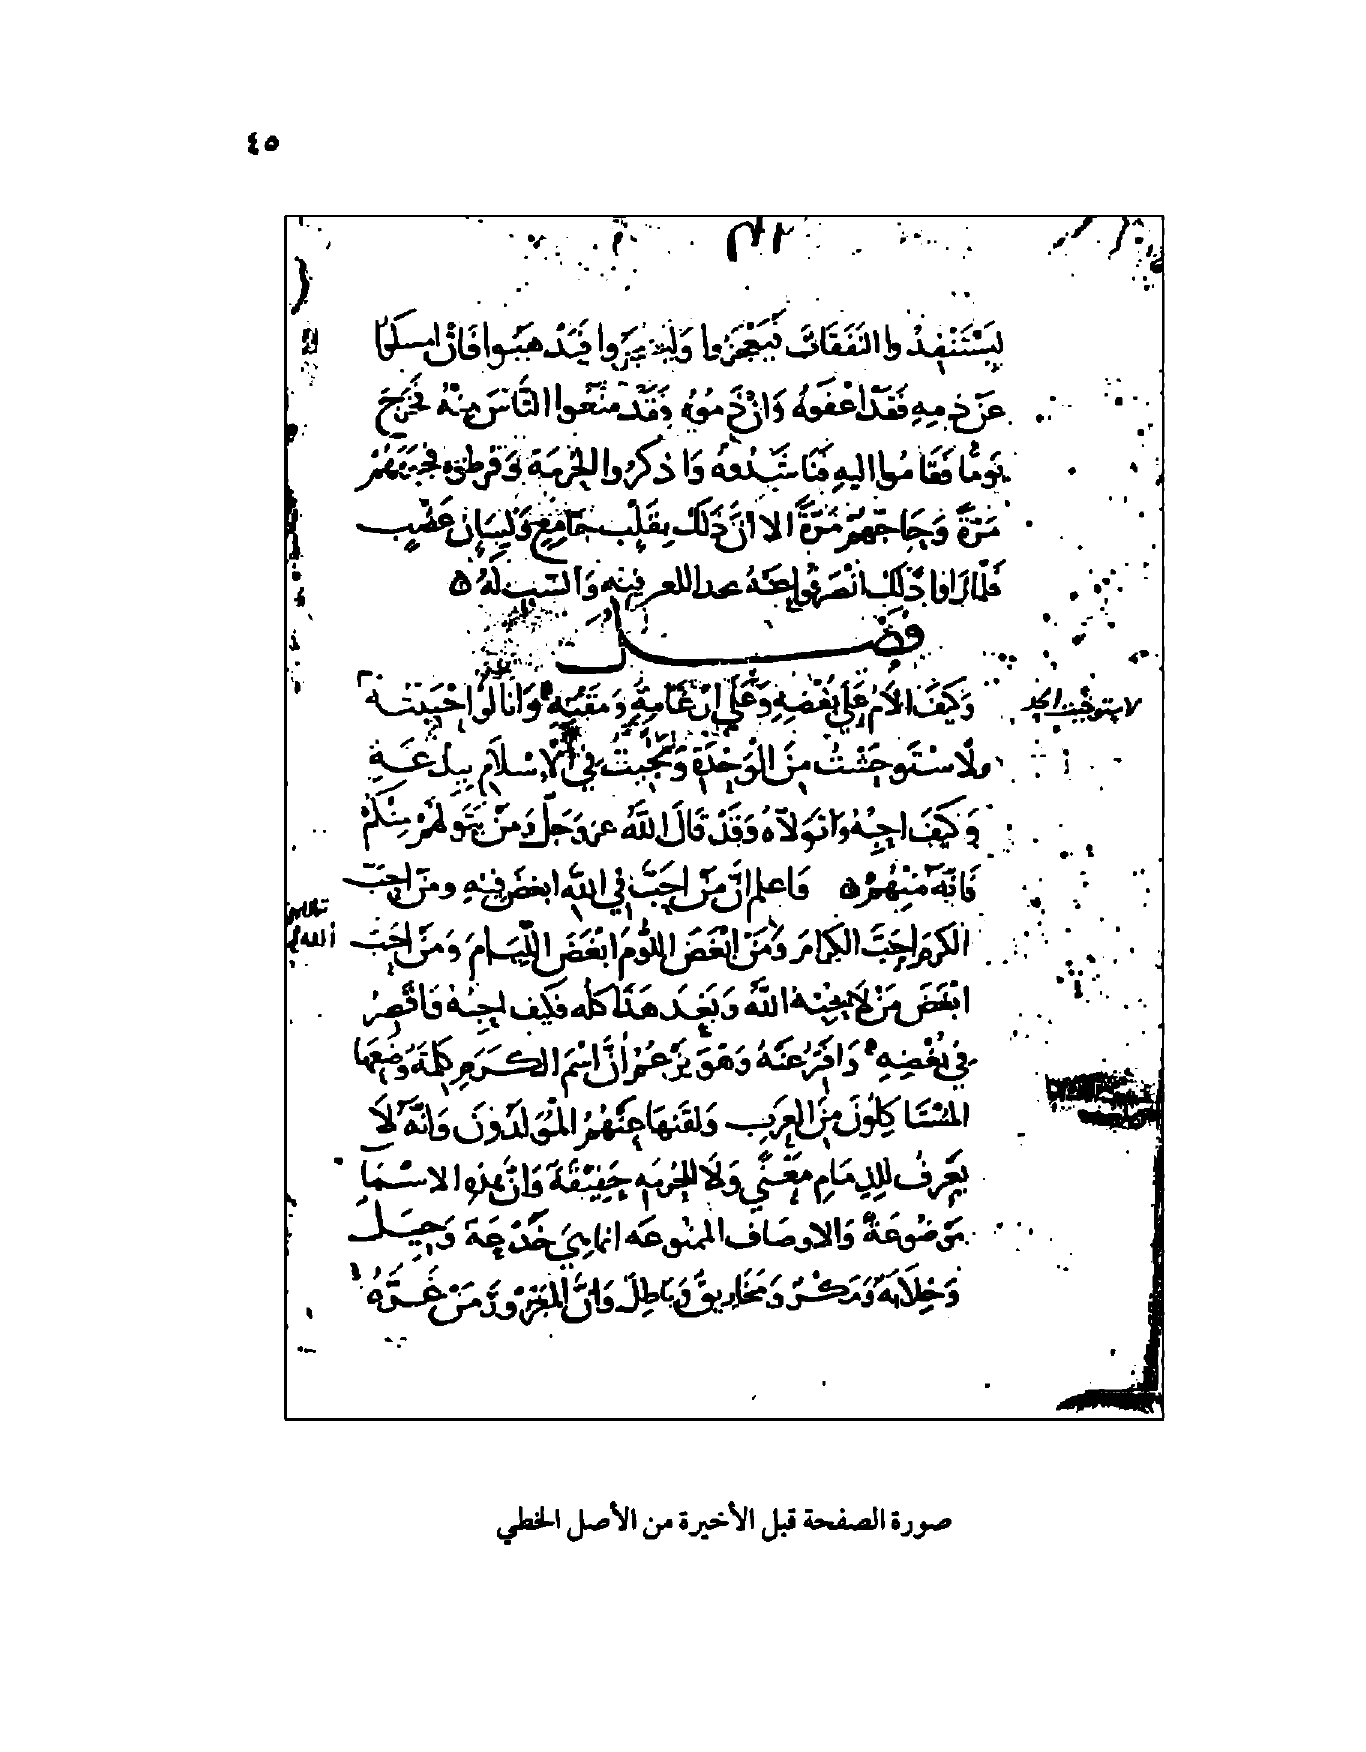 ٤٥
ليَسْتَنْفِذُوا النَّفَقَات فيَعْجَزُوا فَيَذْهَبُوا فَاِنْ امسَكوا
عَن ذمِهِ فَقَد اعفَوهُ وَانْ ذَمّوهُ وَقَدْ مَنَعُوا النَّاسَ مِنْهُ فخَرَجَ
يَومًا فَقَامُوا اليهِ وَا ذكرُوا الحُرمَة
مَرَّةً وَحَاجَهمْ مَرَّةً الا انَّ ذَلَكَ بِقَلْبٍ جَامِعٍ وَلِسَانٍ عَضْبٍ
فَلَمَّا رَاوا ذَلكَ انْصَرَفُوا عَنْهُ
فصَــــل
وَكَيفَ الاَمُ عَلى بُغضِهِ وَعَلى وَمَقتِهِ وَانَا لَوْ احْبَبتُه
لاستوحَشْتُ مِنَ الوَحْدَةِ في الاِسْلاَمِ بِبِدعَةٍ
وَكَيْفَ احِبُّهُ وَاتَولاَّهُ وَقَدْ قَالَ اللَّهُ عز وَجَلَّ وَمَنْ يَتَوَلهُمْ مِنْكُمْ
فَاِنَّهُ مِنْهُمْ وَاعلم انَّ مَنْ احَبَّ في اللَّه ابغضَ فيهِ ومَن احَبّ
الكرَمَ احَبَّ الكِرَامَ وَمَنْ ابْغَضَ اللؤمَ ابْغَضَ اللِّيَامَ وَمَنْ احَبَّ
ابْغَضَ مَنْ لاَ يحِبّهُ اللَّهُ وَبَعْدَ هَذَا كُله فكَيف احِبُّهُ فَاقْصِرُ
في بُغْضِهِ وَهوَ يَزْعُمُ انَّ اسْمَ الكَرَمِ كلمَةٌ وَضَعَها
المُسْتَاكِلُونَ مِنَ العَرَبِ وَلَقَّنَهَا عَنْهُمُ المُوَلَّدُونَ وَانَّهُ لاَ
يَعْرِفُ لِلذِمَامِ مَعْنًى وَلاَ لِلحُرمَهِ حَقِيقَةً وَانَّ هَذهِ الاسْمَا
مَوْضُوعَةٌ وَالاوصَافَ المصنُوعَه انما هِيَ خُدْعَةٌ وَحِيَلٌ
وَخِلاَبَةٌ وَمَكْرٌ وَمَخَارِيقٌ وَبَاطِلٌ وَانَّ المغرُورَ مَنْ غَرَّهُ
صورة الصفحة قبل الأخيرة من الأصل الخطي